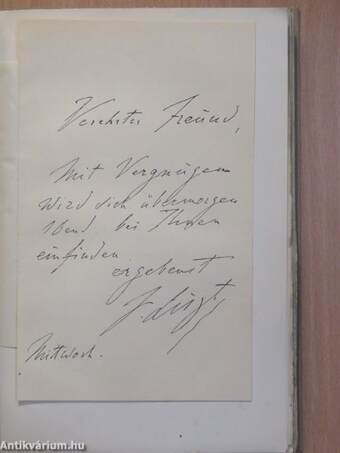 Verehrter Freund,
Mit Vergnügen
wird sich übermorgen
Abend bei Ihnen
einfinden
ergebenst
F. Liszt
Mittwoch.
Antikvárium.hu